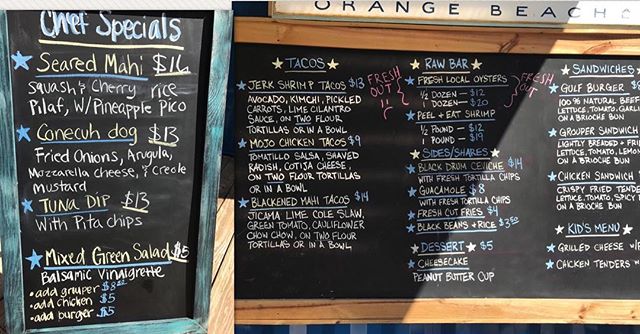 Chef Specials
Seared Mahi $16
Squash, & Cherry rice
Pilaf, W/Pineapple Pico
Conecuh dog $13
Fried Onions, Arugula,
Mozzarella cheese, & Creole
Mustard
Tuna Dip $13
With Pita chips
Mixed Green Salad $5
Balsamic Vinaigrette
• add grouper $8
• add chicken $5
• add burger $5
ORANGE BEACH
TACOS
JERK SHRIMP TACOS $13
AVOCADO, KIMCHI, PICKLED
CARROTS, LIME CILANTRO
SAUCE, ON TWO FLOUR
TORTILLAS OR IN A BOWL
FRESH
OUT
MOJO CHICKEN TACOS $9
TOMATILLO SALSA, SHAVED
RADISH, COTIJA CHEESE,
ON TWO FLOUR TORTILLAS
OR IN A BOWL
BLACKENED MAHI TACOS $14
JICAMA LIME COLE SLAW,
GREEN TOMATO, CAULIFLOWER
CHOW CHOW, ON TWO FLOUR
TORTILLAS OR IN A BOWL
RAW BAR
FRESH LOCAL OYSTERS
1/2 DOZEN - $12
1 DOZEN - $20
FRESH
OUT
PEEL + EAT SHRIMP
1/2 POUND - $12
1 POUND - $19
SIDES/SHARES
BLACK DRUM CEVICHE $14
WITH FRESH TORTILLA CHIPS
GUACAMOLE $8
WITH FRESH TORTILLA CHIPS
FRESH CUT FRIES $4
BLACK BEANS + RICE $3.50
DESSERT $5
CHEESECAKE
PEANUT BUTTER CUP
SANDWICHES
GULF BURGER $8
100% NATURAL BEEF
LETTUCE, TOMATO, GARLI
ON A BRIOCHE BUN
GROUPER SANDWICH
LIGHTLY BREADED + FRI
LETTUCE, TOMATO, LEMON
ON A BRIOCHE BUN
CHICKEN SANDWICH
CRISPY FRIED TENDER
LETTUCE, TOMATO, SPICY
ON A BRIOCHE BUN
KID'S MENU
GRILLED CHEESE W/
CHICKEN TENDERS W